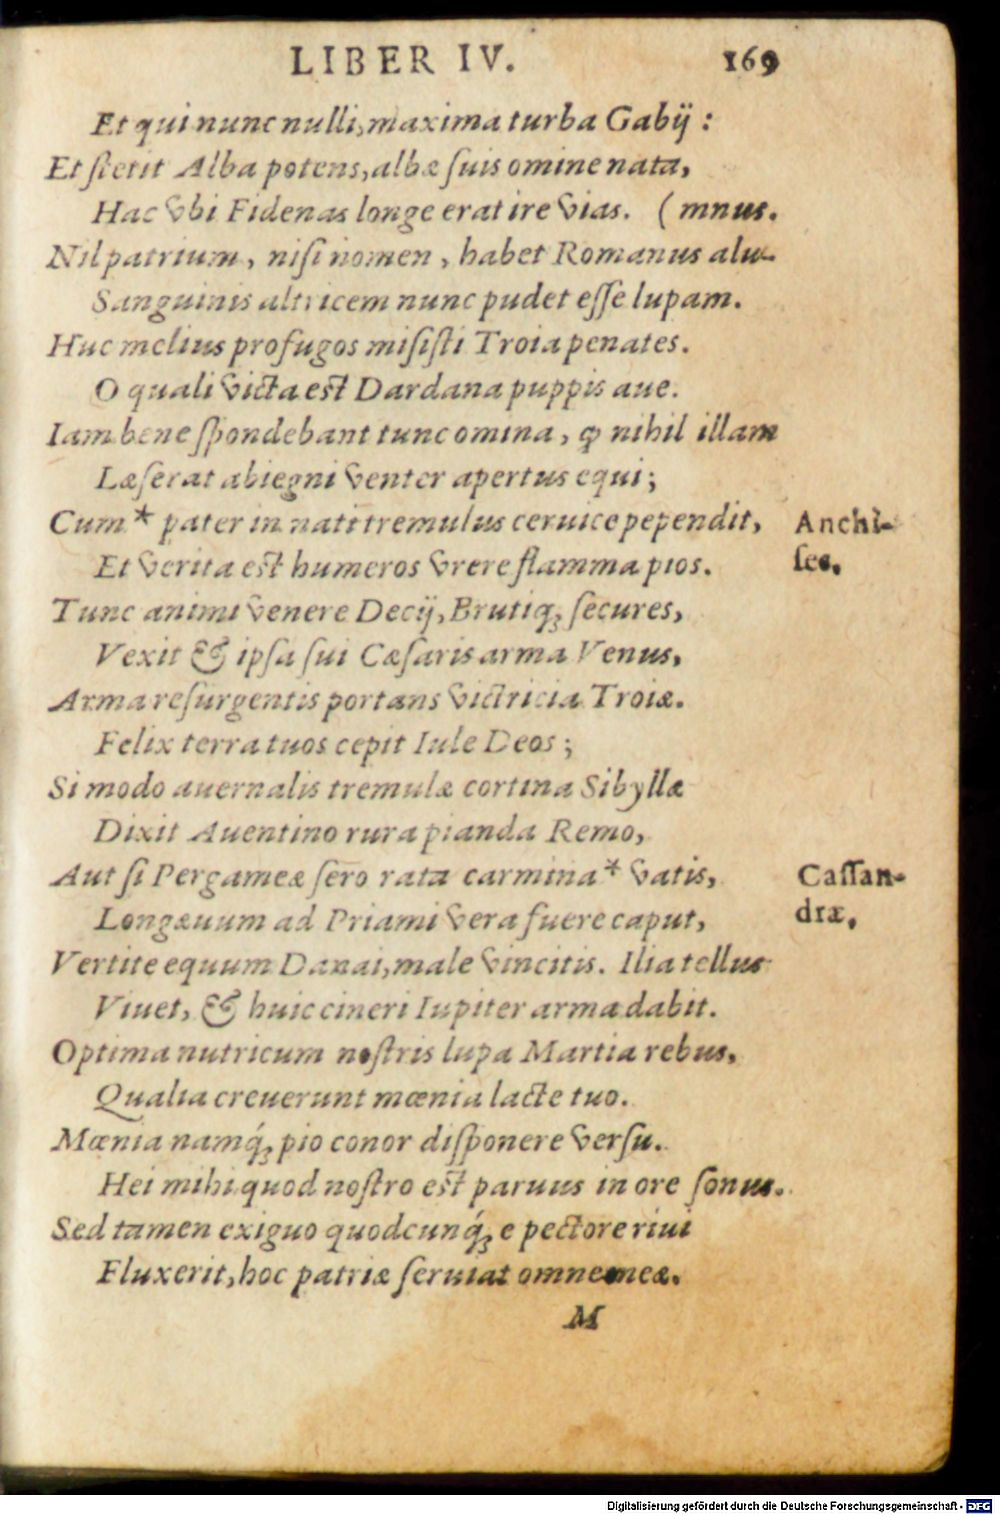 LIBER IV. 169
Et qui nunc nulli, maxima turba Gabij :
Et stetit Alba potens, albæ suis omine nata,
Hac vbi Fidenas longe erat ire vias. (mnus.
Nil patrium, nisi nomen, habet Romanus alu-
Sanguinis altricem nunc pudet esse lupam.
Huc melius profugos misisti Troia penates.
O quali victa est Dardana puppis aue.
Iam bene spondebant tunc omina, ꝙ nihil illam
Læserat abiegni venter apertus equi;
Cum * pater in nati tremulus ceruice pependit, Anchi-
Et verita est humeros vrere flamma pios. ses.
Tunc animi venere Decij, Brutiqꝫ secures,
Vexit & ipsa sui Cæsaris arma Venus,
Arma resurgentis portans victricia Troiæ.
Felix terra tuos cepit Iule Deos ;
Si modo auernalis tremulæ cortina Sibyllæ
Dixit Auentino rura pianda Remo,
Aut si Pergameæ sero rata carmina * vatis, Cassan-
Longæuum ad Priami vera fuere caput, dræ.
Vertite equum Danai, male vincitis. Ilia tellus
Viuet, & huic cineri Iupiter arma dabit.
Optima nutricum nostris lupa Martia rebus,
Qualia creuerunt mœnia lacte tuo.
Mœnia namq́ꝫ pio conor disponere versu.
Hei mihi quod nostro est paruus in ore sonus.
Sed tamen exiguo quodcunq́ꝫ e pectore riui
Fluxerit, hoc patriæ seruiat omne meæ.
M
Digitalisierung gefördert durch die Deutsche Forschungsgemeinschaft - DFG